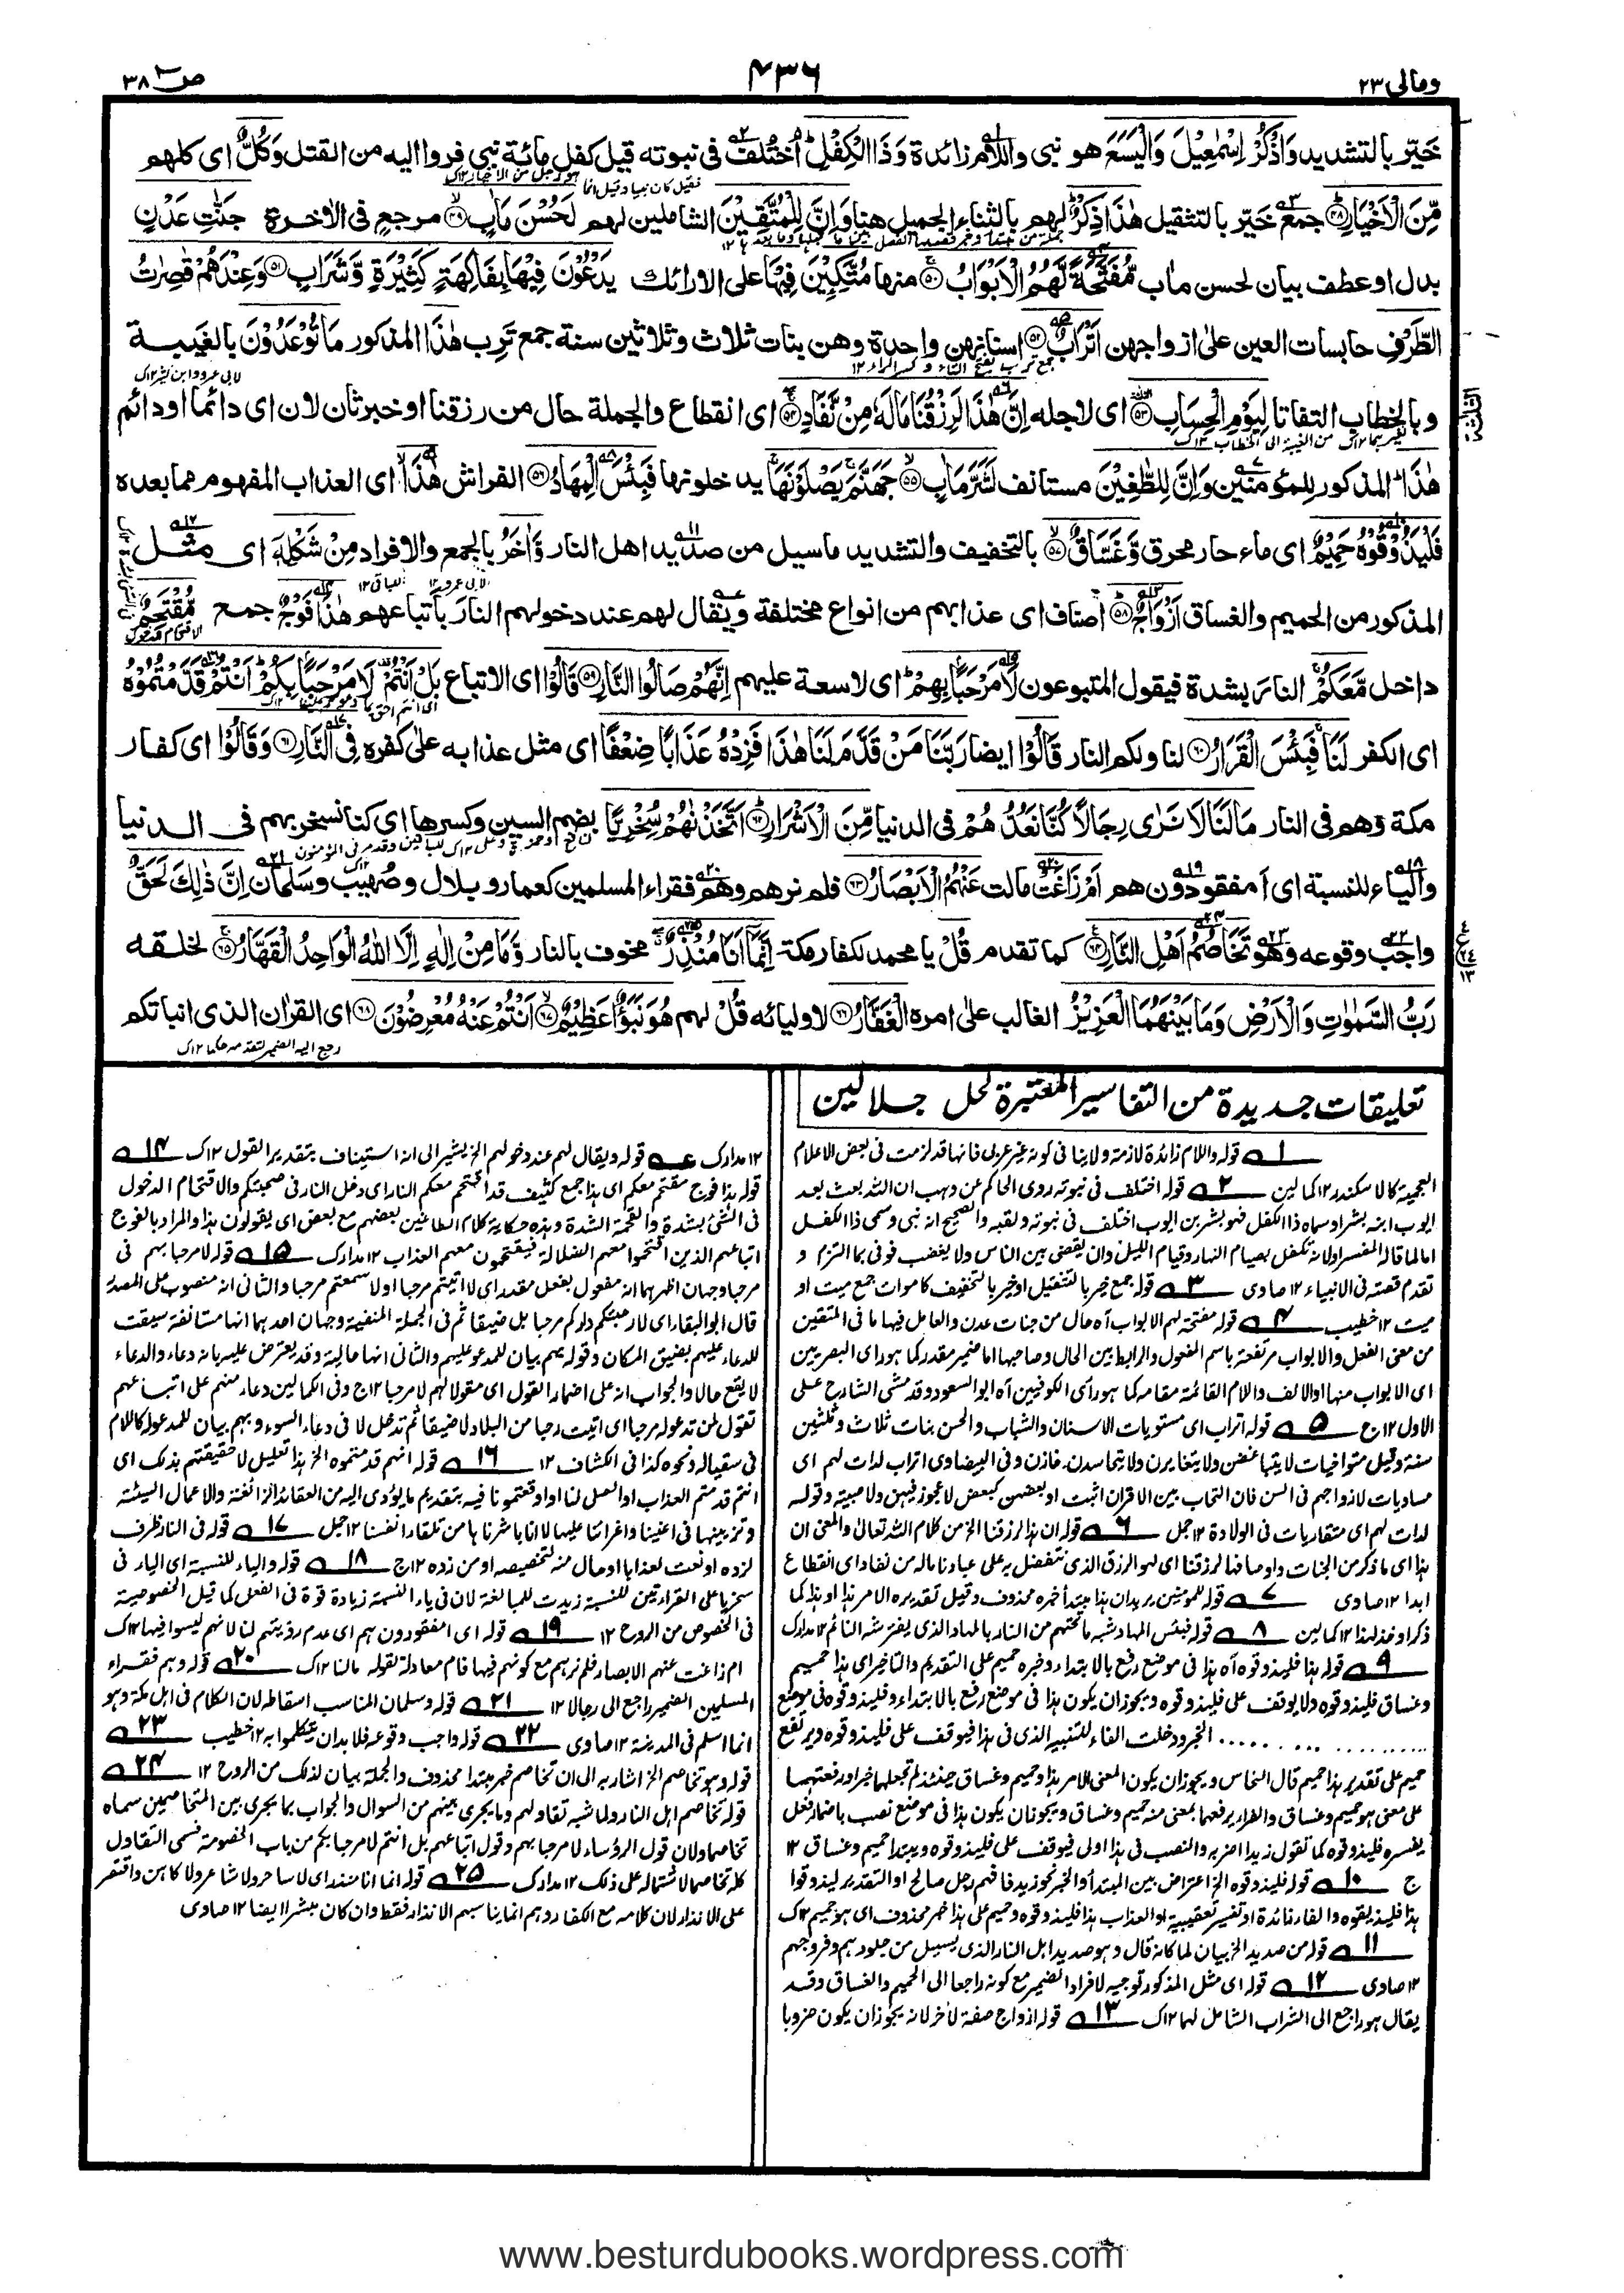 ومالی ٢٣
٤٣٦
صٓ ٣٨
خَيّر بالتشديد وَاذْكُرْ اِسْمٰعِيْلَ وَالْيَسَعَ هو نبى واللام زائدة وَذَا الْكِفْلِ ؕ اُختُلف فى نبوته قيل كفل مائة نبى فروا اليه من القتل وَكُلٌّ اى كلهم
مِّنَ الْاَخْيَارِ ﴿٤٨﴾ جمع خَيّر بالتثقيل هٰذَا ذِكْرٌ ؕ لهم بالثناء الجميل هنا وَاِنَّ لِلْمُتَّقِيْنَ الشاملين لهم لَحُسْنَ مَاٰبٍ ﴿٤٩﴾ مرجع فى الاخرة جَنّٰتِ عَدْنٍ
بدل او عطف بيان لحسن ماٰب مُّفَتَّحَةً لَّهُمُ الْاَبْوَابُ ﴿٥٠﴾ منها مُتَّكِـِٕيْنَ فِيْهَا على الارائك يَدْعُوْنَ فِيْهَا بِفَاكِهَةٍ كَثِيْرَةٍ وَّشَرَابٍ ﴿٥١﴾ وَعِنْدَهُمْ قٰصِرٰتُ
الطَّرْفِ حابسات العين على ازواجهن اَتْرَابٌ ﴿٥٢﴾ اسنانهن واحدة وهن بنات ثلاث وثلاثين سنة جمع تَرِب هٰذَا المذكور مَا تُوْعَدُوْنَ بالغَيبة
وبالخطاب التفاتا لِيَوْمِ الْحِسَابِ ﴿٥٣﴾ اى لاجله اِنَّ هٰذَا لَرِزْقُنَا مَا لَهٗ مِنْ نَّفَادٍ ﴿٥٤﴾ اى انقطاع والجملة حال من رزقنا او خبر ثان لان اى دائما او دائم
هٰذَا ؕ المذكور للمؤمنين وَاِنَّ لِلطّٰغِيْنَ مستانف لَشَرَّ مَاٰبٍ ﴿٥٥﴾ جَهَنَّمَ يَصْلَوْنَهَا يدخلونها فَبِئْسَ الْمِهَادُ ﴿٥٦﴾ الفراش هٰذَا اى العذاب المفهوم مما بعده
فَلْيَذُوْقُوْهُ حَمِيْمٌ اى ماء حار محرق وَّغَسَّاقٌ ﴿٥٧﴾ بالتخفيف والتشديد ما سيل من صديد اهل النار وَّاٰخَرُ بالجمع والافراد مِنْ شَكْلِهٖٓ اى مثل
المذكور من الحميم والغساق اَزْوَاجٌ ﴿٥٨﴾ اصناف اى عذابهم من انواع مختلفة ويقال لهم عند دخولهم النار باتباعهم هٰذَا فَوْجٌ جمع مُّقْتَحِمٌ
داخل مَّعَكُمْ النار بشدة فيقول المتبوعون لَا مَرْحَبًۢا بِهِمْ ؕ اى لا سعة عليهم اِنَّهُمْ صَالُوا النَّارِ ﴿٥٩﴾ قَالُوْا اى الاتباع بَلْ اَنْتُمْ لَا مَرْحَبًۢا بِكُمْ ؕ اَنْتُمْ قَدَّمْتُمُوْهُ
اى الكفر لَنَا فَبِئْسَ الْقَرَارُ ﴿٦٠﴾ لنا ولكم النار قَالُوْا ايضا رَبَّنَا مَنْ قَدَّمَ لَنَا هٰذَا فَزِدْهُ عَذَابًا ضِعْفًا اى مثل عذابه على كفره فِى النَّارِ ﴿٦١﴾ وَقَالُوْا اى كفار
مكة وهم فى النار مَا لَنَا لَا نَرٰى رِجَالًا كُنَّا نَعُدُّهُمْ فى الدنيا مِّنَ الْاَشْرَارِ ﴿٦٢﴾ اَتَّخَذْنٰهُمْ سِخْرِيًّا بضم السين وكسرها اى كنا نسخر بهم فى الدنيا
والياء للنسبة اى أ مفقودون هم اَمْ زَاغَتْ مالت عَنْهُمُ الْاَبْصَارُ ﴿٦٣﴾ فلم نرهم وهم فقراء المسلمين كعمار وبلال وصهيب وسلمان اِنَّ ذٰلِكَ لَحَقٌّ
واجب وقوعه وهو تَخَاصُمُ اَهْلِ النَّارِ ﴿٦٤﴾ كما تقدم قُلْ يا محمد لكفار مكة اِنَّمَآ اَنَا مُنْذِرٌ مخوف بالنار وَّمَا مِنْ اِلٰهٍ اِلَّا اللّٰهُ الْوَاحِدُ الْقَهَّارُ ﴿٦٥﴾ لخلقه
رَبُّ السَّمٰوٰتِ وَالْاَرْضِ وَمَا بَيْنَهُمَا الْعَزِيْزُ الغالب على امره الْغَفَّارُ ﴿٦٦﴾ لاوليائه قُلْ لهم هُوَ نَبَؤٌا عَظِيْمٌ ﴿٦٧﴾ اَنْتُمْ عَنْهُ مُعْرِضُوْنَ ﴿٦٨﴾ اى القرآن الذى انباتكم
تعليقات جديدة من التفاسير المعتبرة لحل جلالين
١ قوله واللام زائدة لازمة ولا ينافى كونه غير عربى فانها قد لزمت فى بعض الاعلام
العجمية كالاسكندر ١٢ كمالين ٢ قوله اختلف فى نبوته روى الحاكم عن وهب ان الله بعث بعد
ايوب ابنه بشرا وسماه ذا الكفل فهو بشر بن ايوب اختلف فى نبوته ولقبه والصحيح انه نبى وسمى ذا الكفل
اما لما قاله المفسر او لانه تكفل بصيام النهار وقيام الليل وان يقضى بين الناس ولا يغضب فوفى بما التزم و
تقدم قصته فى الانبياء ١٢ صاوى ٣ قوله جمع خير بالتثقيل او خير بالتخفيف كاموات جمع ميت او
ميت ١٢ خطيب ٤ قوله مفتحة لهم الابواب آه حال من جنات عدن والعامل فيها ما فى المتقين
من معنى الفعل والابواب مرتفعة باسم المفعول والرابط بين الحال وصاحبها اما ضمير مقدر كما هو راى البصريين
اى الابواب منها او الالف واللام القائمة مقامه كما هو راى الكوفيين آه ابو السعود وقد مشى الشارح على
الاول ١٢ ج ٥ قوله اتراب اى مستويات الاسنان والشباب والحسن بنات ثلاث وثلثين
سنة وقيل متواخيات لا يتباغضن ولا يتغايرن ولا يتحاسدن خازن وفى البيضاوى اتراب لدات لهم اى
مساويات لازواجهم فى السن فان التحاب بين الاقران اثبت او بعضهن كبعض لا عجوز فيهن ولا صبية وقوله
لدات لهم اى متقاربات فى الولادة ١٢ جمل ٦ قوله ان هذا لرزقنا الخ من كلام الله تعالى والمعنى ان
هذا اى ما ذكر من الجنات واوصافها لرزقنا اى لهو الرزق الذى نتفضل به على عبادنا ماله من نفاد اى انقطاع
ابدا ١٢ صاوى ٧ قوله للمؤمنين يريد ان هذا مبتدأ خبره محذوف وقيل تقديره الامر هذا او هذا كما
ذكر او خذ هذا ١٢ كمالين ٨ قوله فبئس المهاد شبه ما تحتهم من النار بالمهاد الذى يفترشه النائم ١٢ مدارك
٩ قوله هذا فليذوقوه آه هذا فى موضع رفع بالابتداء وخبره حميم على التقديم والتاخير اى هذا حميم
وغساق فليذوقوه ولا يوقف على فليذوقوه ويجوز ان يكون هذا فى موضع رفع بالابتداء وفليذوقوه فى موضع
الخبر ودخلت الفاء للتنبيه الذى فى هذا فيوقف على فليذوقوه ويرتفع
حميم على تقدير هذا حميم قال النحاس ويجوز ان يكون المعنى الامر هذا وحميم وغساق حينئذ لم تجعلهما خبرا ورفعتهما
على معنى هو حميم وغساق والفراء يرفعهما بمعنى منه حميم وغساق ويجوز ان يكون هذا فى موضع نصب باضمار فعل
يفسره فليذوقوه كما تقول زيدا اضربه والنصب فى هذا اولى فيوقف على فليذوقوه ويبتدا حميم وغساق ١٢
ج ١٠ قوله فليذوقوه الخ اعتراض بين المبتدأ والخبر نحو زيد فافهم رجل صالح او التقدير ليذوقوا
هذا فليذيقوه والفاء زائدة او تفسير تعقيبية او العذاب هذا فليذوقوه وحميم على هذا خبر محذوف اى هو حميم ١٢ ك
١١ قوله من صديد الخ بيان لما كانه قال وهو صديد اهل النار الذى يسيل من جلودهم وفروجهم
١٢ صاوى ١٢ قوله اى مثل المذكور توجيه لافراد الضمير مع كونه راجعا الى الحميم والغساق وقد
يقال هو راجع الى الشراب الشامل لهما ١٢ ك ١٣ قوله ازواج صفة لاخر لانه يجوز ان يكون ضروبا
١٢ مدارك قوله ويقال لهم عند دخولهم الخ يشير الى انه استيناف بتقدير القول ١٢ ك ١٤
قوله هذا فوج مقتحم معكم اى هذا جمع كثيف قد اقتحم معكم النار اى دخل النار فى صحبتكم والاقتحام الدخول
فى الشئ بشدة والقحمة الشدة وهذه حكاية كلام الطاغين بعضهم مع بعض اى يقولون هذا والمراد بالفوج
اتباعهم الذين اقتحموا معهم الضلالة فيقتحمون معهم العذاب ١٢ مدارك ١٥ قوله لا مرحبا بهم فى
مرحبا وجهان اظهرهما انه مفعول بفعل مقدر اى لا اتيتم مرحبا او لا سمعتم مرحبا والثانى انه منصوب على المصدر
قال ابو البقاء اى لا رحبتكم داركم مرحبا بل ضيقا ثم فى الجملة المنفية وجهان احدهما انها مستانفة سيقت
للدعاء عليهم بضيق المكان وقوله بهم بيان للمدعو عليهم والثانى انها حالية وقد يعترض عليه بانه دعاء والدعاء
لا يقع حالا والجواب انه على اضمار القول اى مقولا لهم لا مرحبا ١٢ ج وفى الكمالين دعاء منهم على اتباعهم
تقول لمن تدعوله مرحبا اى اتيت رحبا من البلاد لا ضيقا ثم تدخل لا فى دعاء السوء وبهم بيان للمدعوله كاللام
فى سقياله ونحوه كذا فى الكشاف ١٢ ١٦ قوله انتم قدمتموه الخ هذا تعليل لاحقيقتهم بذلك اى
انتم قدمتم العذاب او العمل لنا او اوقعتمونا فيه بتقديم ما يؤدى اليه من العقائد الزائغة والاعمال السيئة
وتزيينها فى اعيننا واغرائنا عليها لا انا باشرناها من تلقاء انفسنا ١٢ جمل ١٧ قوله فى النار ظرف
لزده او نعت لعذابا او حال منه لتخصيصه او من زده ١٢ ج ١٨ قوله والياء للنسبة اى الياء فى
سخريا على القراءتين للنسبة زيدت للمبالغة لان فى ياء النسبة زيادة قوة فى الفعل كما قيل الخصوصية
فى الخصوص من الروح ١٢ ١٩ قوله اى أمفقودون هم اى عدم رؤيتهم لنا لانهم ليسوا فيها ١٢ ك
ام زاغت عنهم الابصار فلم نرهم مع كونهم فيها فام معادلة لقوله مالنا ١٢ ك ٢٠ قوله وهم فقراء
المسلمين الضمير راجع الى رجالا ١٢ ٢١ قوله وسلمان المناسب اسقاطه لان الكلام فى اهل مكة وهو
انما اسلم فى المدينة ١٢ صاوى ٢٢ قوله واجب وقوعه فلا بد ان يتكلموا به ١٢ خطيب ٢٣
قوله وهو تخاصم الخ اشار به الى ان تخاصم خبر مبتدا محذوف والجملة بيان لذلك من الروح ١٢ ٢٤
قوله تخاصم اهل النار ولما شبه تقاولهم وما يجرى بينهم من السوال والجواب بما يجرى بين المتخاصمين سماه
تخاصما ولان قول الرؤساء لا مرحبا بهم وقول اتباعهم بل انتم لا مرحبا بكم من باب الخصومة فسمى التقاول
كله تخاصما لاشتماله على ذلك ١٢ مدارك ٢٥ قوله انما انا منذر اى لا ساحر ولا شاعر ولا كاهن واقتصر
على الانذار لان كلامه مع الكفار وهم انما يناسبهم الانذار فقط وان كان مبشرا ايضا ١٢ صاوى
www.besturdubooks.wordpress.com